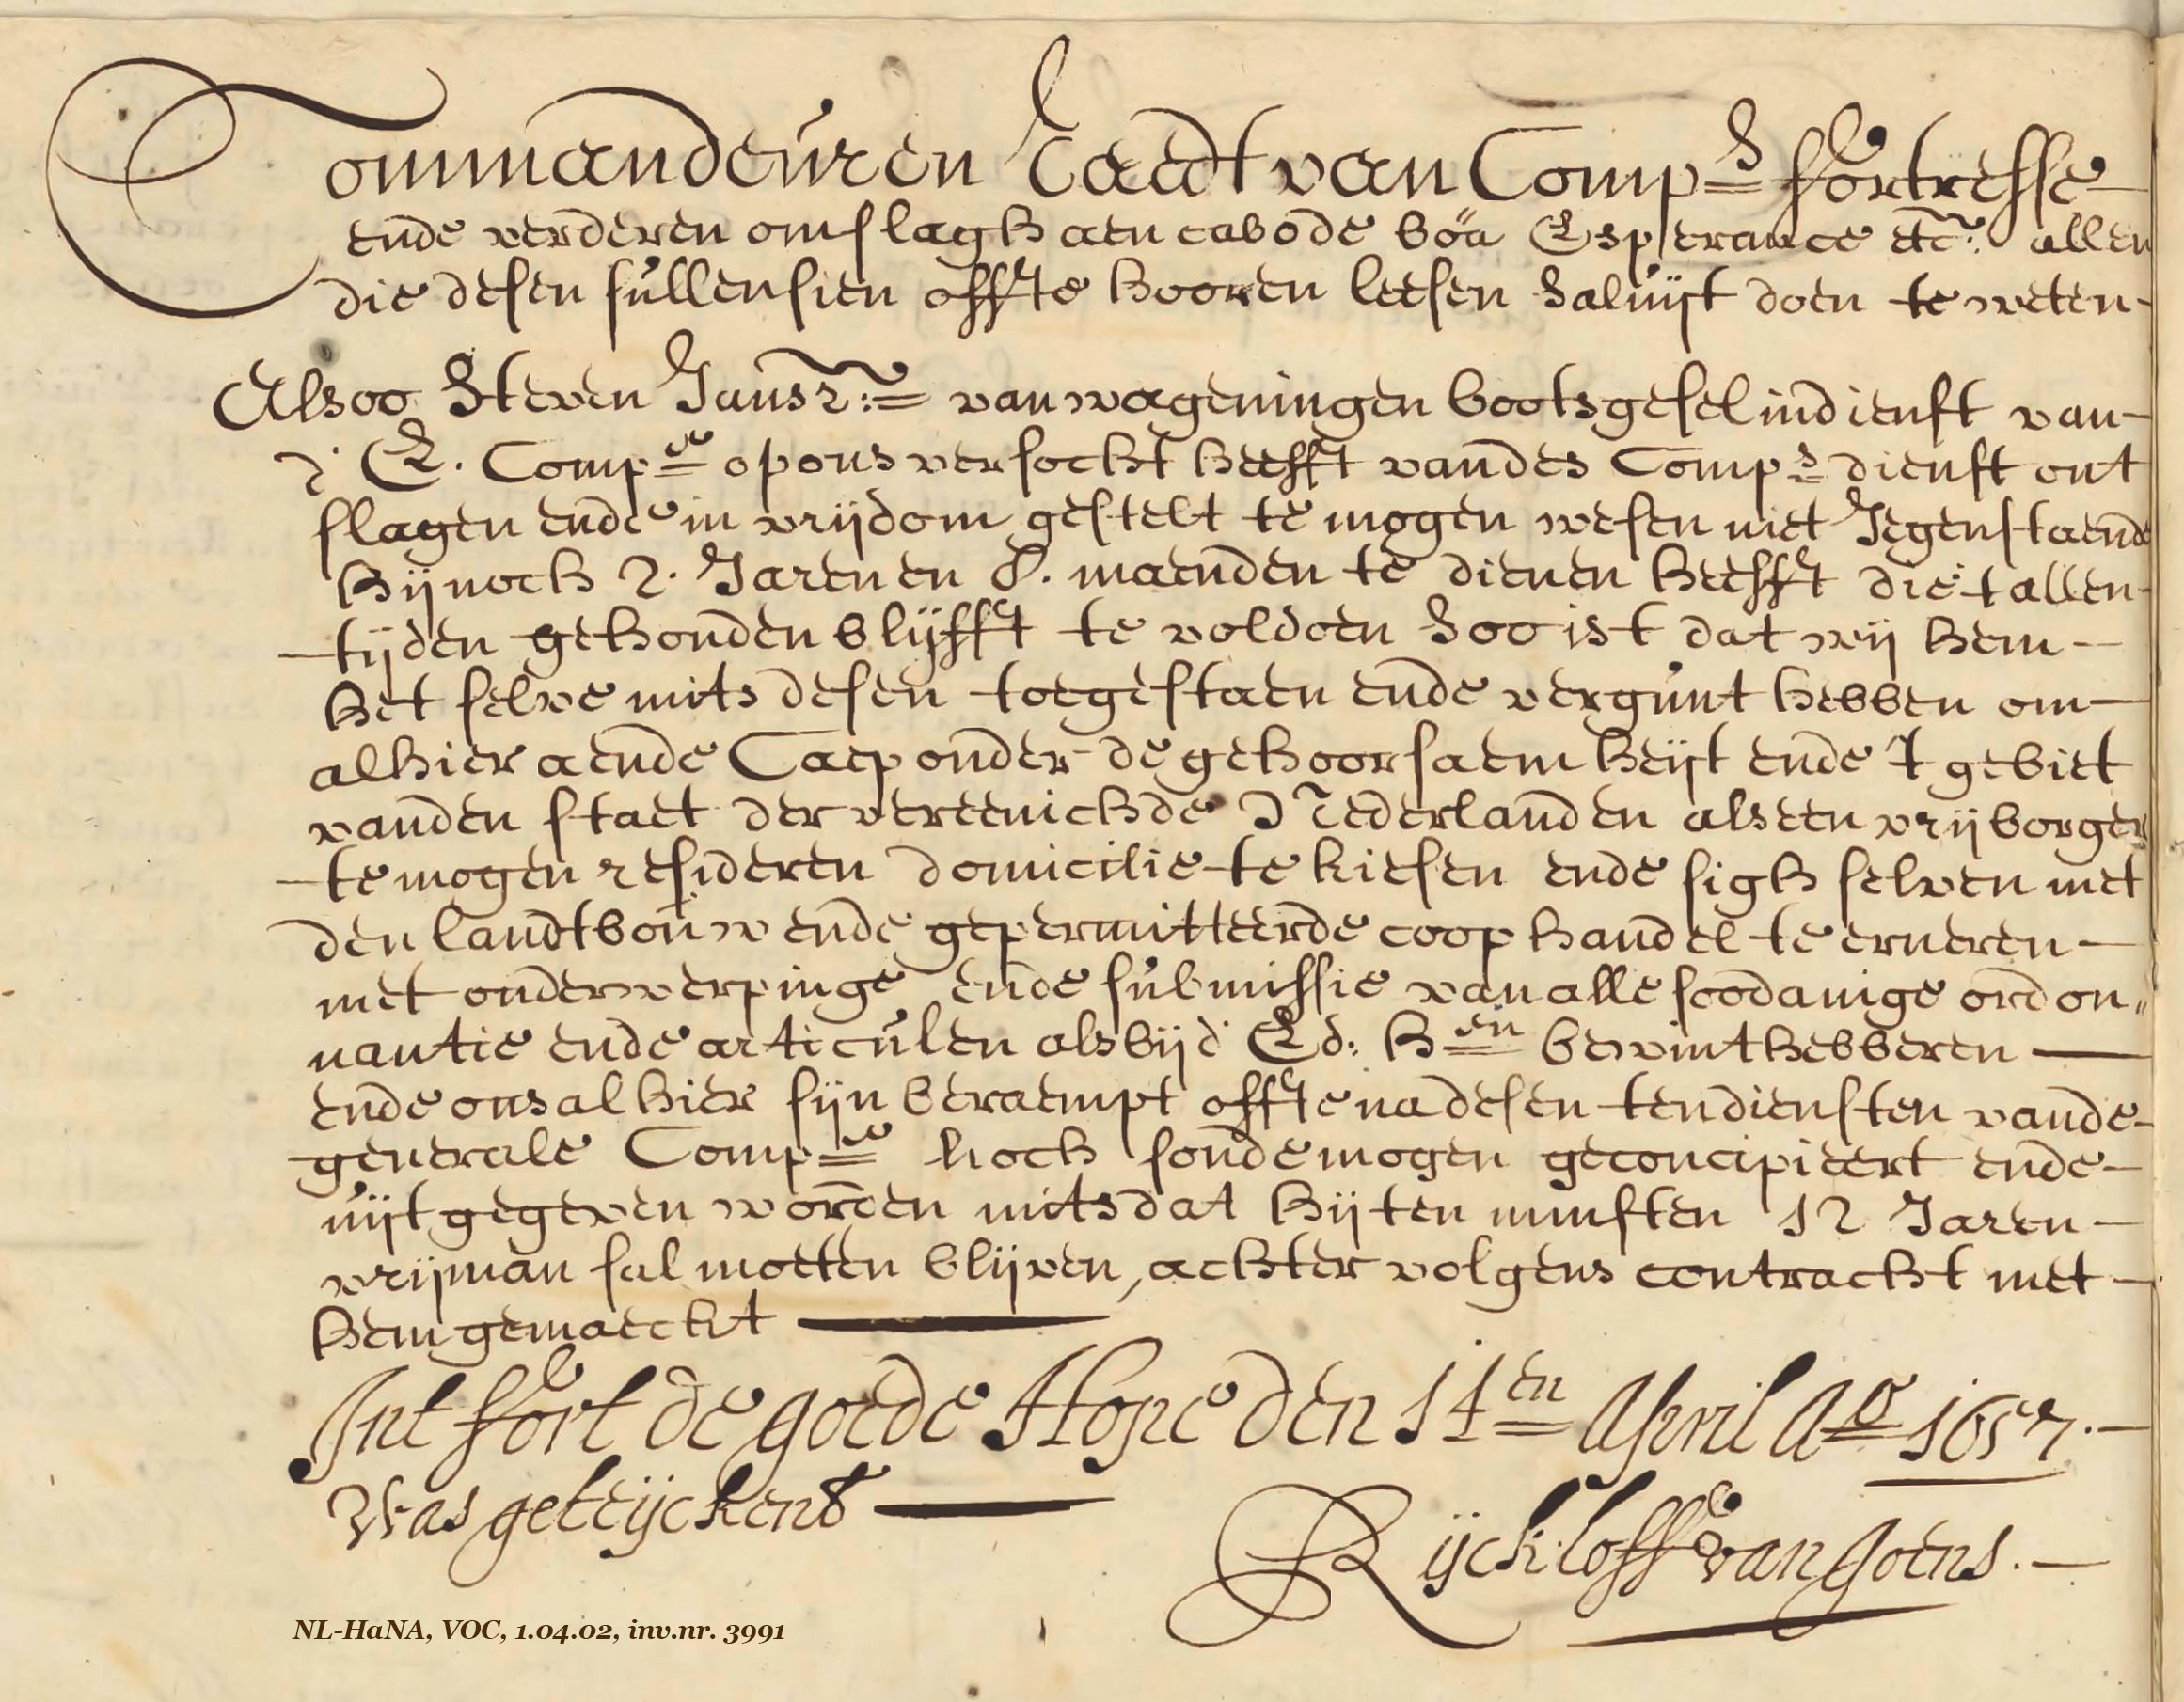 Commandeur en Raadt van Comp:s fortresse
ende verderen omslagh aen cabo de boä Esperance etc:a allen
die desen sullen sien offte hooren leesen Saluijt doen te weten
Alsoo Steven Jansz: van wageningen bootsgesel in dienst van
d' E. Comp:e op ons versocht heefft van des Comp:s dienst ont
slagen ende in vrijdom gestelt te mogen wesen niet Jegenstaende
hij noch 2. Jaren en 8. maenden te dienen heefft die t allen
tijden gehouden blijfft te voldoen Soo ist dat wij hem
het selve mits desen toegestaen ende vergunt hebben om
alhier aende Caep onder de gehoorsaemheijt ende t gebiet
vanden staet der vereenichde Nederlanden als een vrijborger
te mogen resideren domicilie te kiesen ende sigh selven met
den landtbouw ende gepermitteerde coophandel te erneren
met onderwerpinge ende submissie van alle soodanige ordon„
nantie ende articulen als bij d' Ed: H:en bewinthebberen
ende ons alhier sijn beraempt offte na desen ten diensten vande
generale Comp:e noch soude mogen geconcipieert ende
uijtgegeven worden mits dat hij ten minsten 12 Jaren
vrijman sal moeten blijven, achtervolgens contracht met
hem gemaeckt
Int fort de goede Hope den 14:en April A:o 1657.
Was geteijckent
Rijckloff van Goens.
NL-HaNA, VOC, 1.04.02, inv.nr. 3991